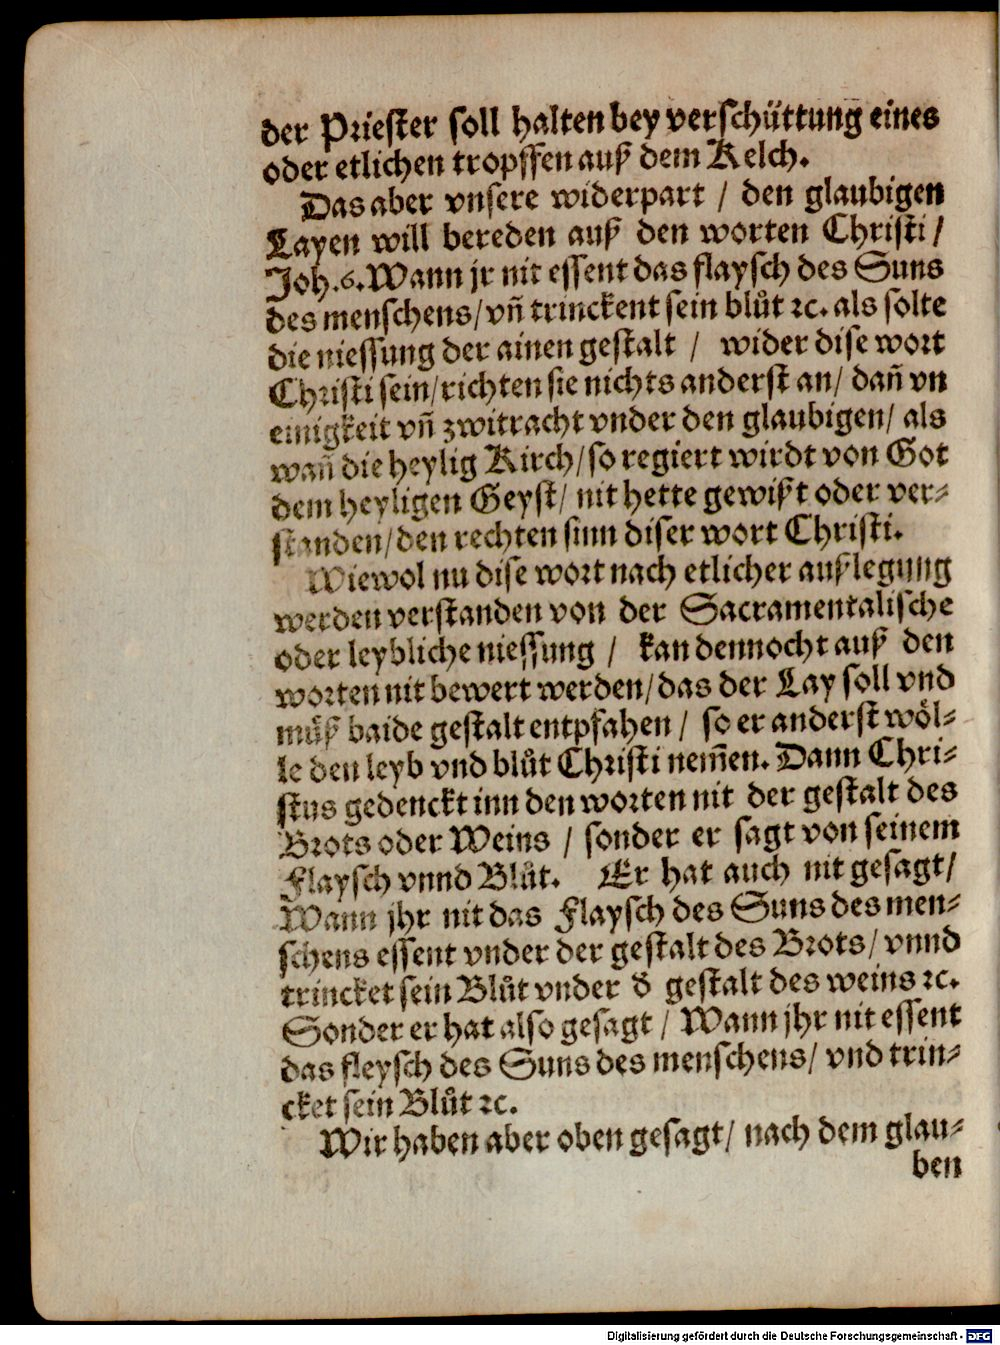 der Priester soll halten bey verschüttung eines
oder etlichen tropffen auß dem Kelch.
Das aber vnsere widerpart / den glaubigen
Layen will bereden auß den worten Christi /
Joh. 6. Wann jr nit essent das flaysch des Suns
des menschens / vñ trinckent sein blůt ꝛc. als solte
die niessung der ainen gestalt / wider dise wort
Christi sein / richten sie nichts anderst an / dañ vn
einigkeit vñ zwitracht vnder den glaubigen / als
wañ die heylig Kirch / so regiert wirdt von Got
dem heyligen Geyst / nit hette gewißt oder ver⸗
standen / den rechten sinn diser wort Christi.
Wiewol nu dise wort nach etlicher außlegung
werden verstanden von der Sacramentalische
oder leybliche niessung / kan dennocht auß den
worten nit bewert werden / das der Lay soll vnd
můß baide gestalt entpfahen / so er anderst wöl⸗
le den leyb vnd blůt Christi nem̃en. Dann Chri⸗
stus gedenckt inn den worten nit der gestalt des
Brots oder Weins / sonder er sagt von seinem
Flaysch vnnd Blůt. Er hat auch nit gesagt /
Wann jhr nit das Flaysch des Suns des men⸗
schens essent vnder der gestalt des Brots / vnnd
trincket sein Blůt vnder ď gestalt des weins ꝛc.
Sonder er hat also gesagt / Wann jhr nit essent
das fleysch des Suns des menschens / vnd trin⸗
cket sein Blůt ꝛc.
Wir haben aber oben gesagt / nach dem glau⸗
ben
Digitalisierung gefördert durch die Deutsche Forschungsgemeinschaft - DFG